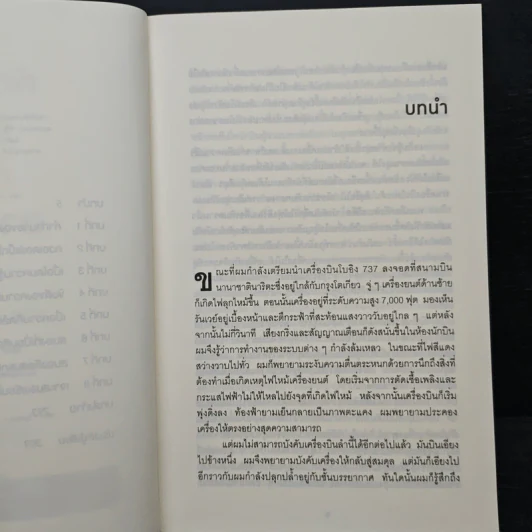 บทนำ
ขณะที่ผมกำลังเตรียมนำเครื่องบินโบอิง 737 ลงจอดที่สนามบิน
นานาชาตินาริตะซึ่งอยู่ใกล้กับกรุงโตเกียว จู่ ๆ เครื่องยนต์ด้านซ้าย
ก็เกิดไฟลุกไหม้ขึ้น ตอนนั้นเครื่องอยู่ที่ระดับความสูง 7,000 ฟุต มองเห็น
รันเวย์อยู่เบื้องหน้าและตึกระฟ้าที่สะท้อนแสงวาววับอยู่ไกล ๆ แต่หลัง
จากนั้นไม่กี่วินาที เสียงกริ่งและสัญญาณเตือนก็ดังสนั่นขึ้นในห้องนักบิน
ผมจึงรู้ว่าการทำงานของระบบต่าง ๆ กำลังล้มเหลว ในขณะที่ไฟสีแดง
สว่างวาบไปทั่ว ผมก็พยายามระงับความตื่นตระหนกด้วยการนึกถึงสิ่งที่
ต้องทำเมื่อเกิดเหตุไฟไหม้เครื่องยนต์ โดยเริ่มจากการตัดเชื้อเพลิงและ
กระแสไฟฟ้าไม่ให้ไหลไปยังจุดที่เกิดไฟไหม้ หลังจากนั้นเครื่องบินก็เริ่ม
พุ่งดิ่งลง ท้องฟ้ายามเย็นกลายเป็นภาพตะแคง ผมพยายามประคอง
เครื่องให้ตรงอย่างสุดความสามารถ
แต่ผมไม่สามารถบังคับเครื่องบินลำนี้ได้อีกต่อไปแล้ว มันบินเอียง
ไปข้างหนึ่ง ผมจึงพยายามบังคับเครื่องให้กลับสู่สมดุล แต่มันก็เอียงไป
อีกราวกับผมกำลังปลุกปล้ำอยู่กับชั้นบรรยากาศ ทันใดนั้นผมก็รู้สึกถึง